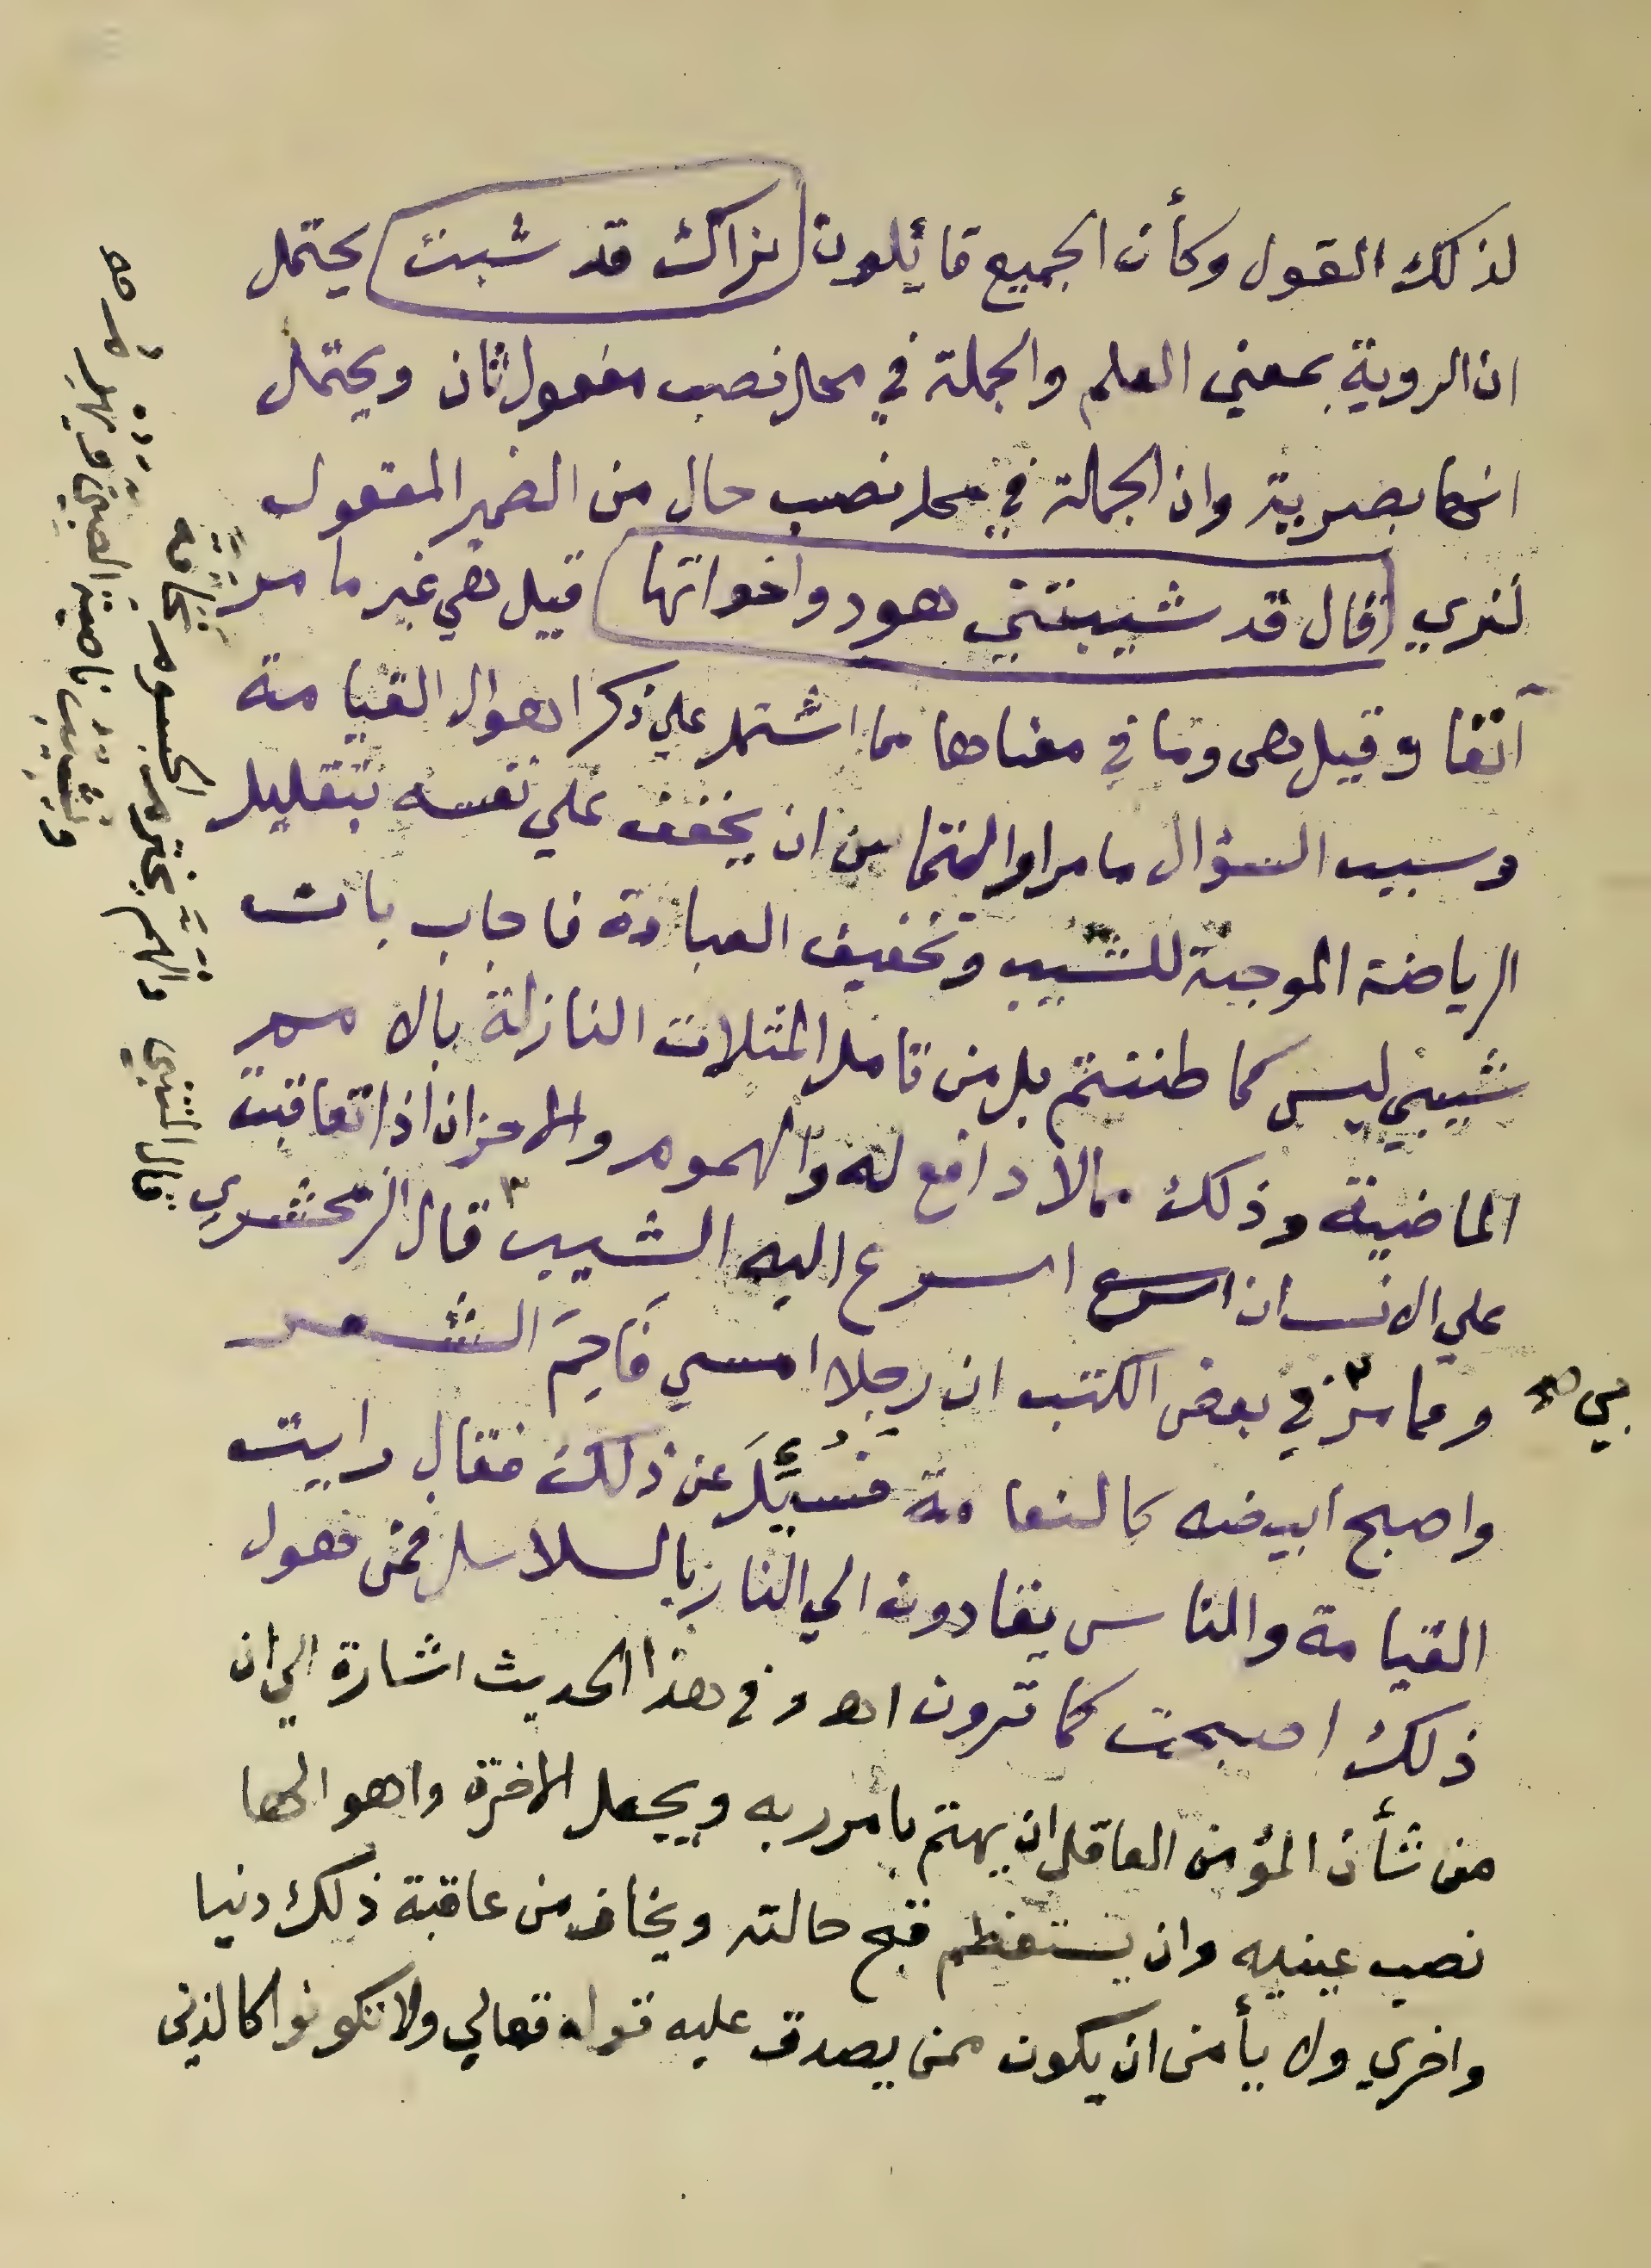 لذلك القول وكأن الجميع قائلون (نراك قد شبت) يحتمل
ان الروية بمعني العلم والجملة في محل نصب مفعول ثان ويحتمل
انها بصرية وان الجملة في محل نصب حال من الضمير المفعول
لنري (قال قد شيبتني هود واخواتها) قيل هي غير ما مر
آنفا وقيل هي وما في معناها مما اشتمل علي ذكر اهوال القيامة
وسبب السؤال ما مر او التماس ان يخفف علي نفسه بتقليل
الرياضة الموجبة للشيب وتخفيف العبادة فاجاب بان
شيبي ليس كما ظننتم بل من تامل المثلات النازلة بالامم
الماضية وذلك مما لا دافع له والهموم والاحزان اذا تعاقبت
علي الانسان اسرع اليه الشيب قال الزمخشري
ومما مر بي في بعض الكتب ان رجلا امسي فَاحِمَ الشعر
واصبح ابيضه كالنعامة فَسُئِلَ عن ذلك فقال رايت
القيامة والناس يقادون الي النار بالسلاسل فمن هول
ذلك اصبحت كما ترون اهـ وفي هذا الحديث اشارة الي ان
من شأن المؤمن العاقل ان يهتم بامر ربه ويجعل الاخرة واهوالها
نصب عينيه وان يستعظم قبح حالته ويخاف من عاقبة ذلك دنيا
واخري ولا يأمن ان يكون ممن يصدق عليه قوله تعالي ولا تكونوا كالذين
قال المتنبي والهم يخترم الجسيم نحافة
ويشيب ناصية الصبي ويهرم صح